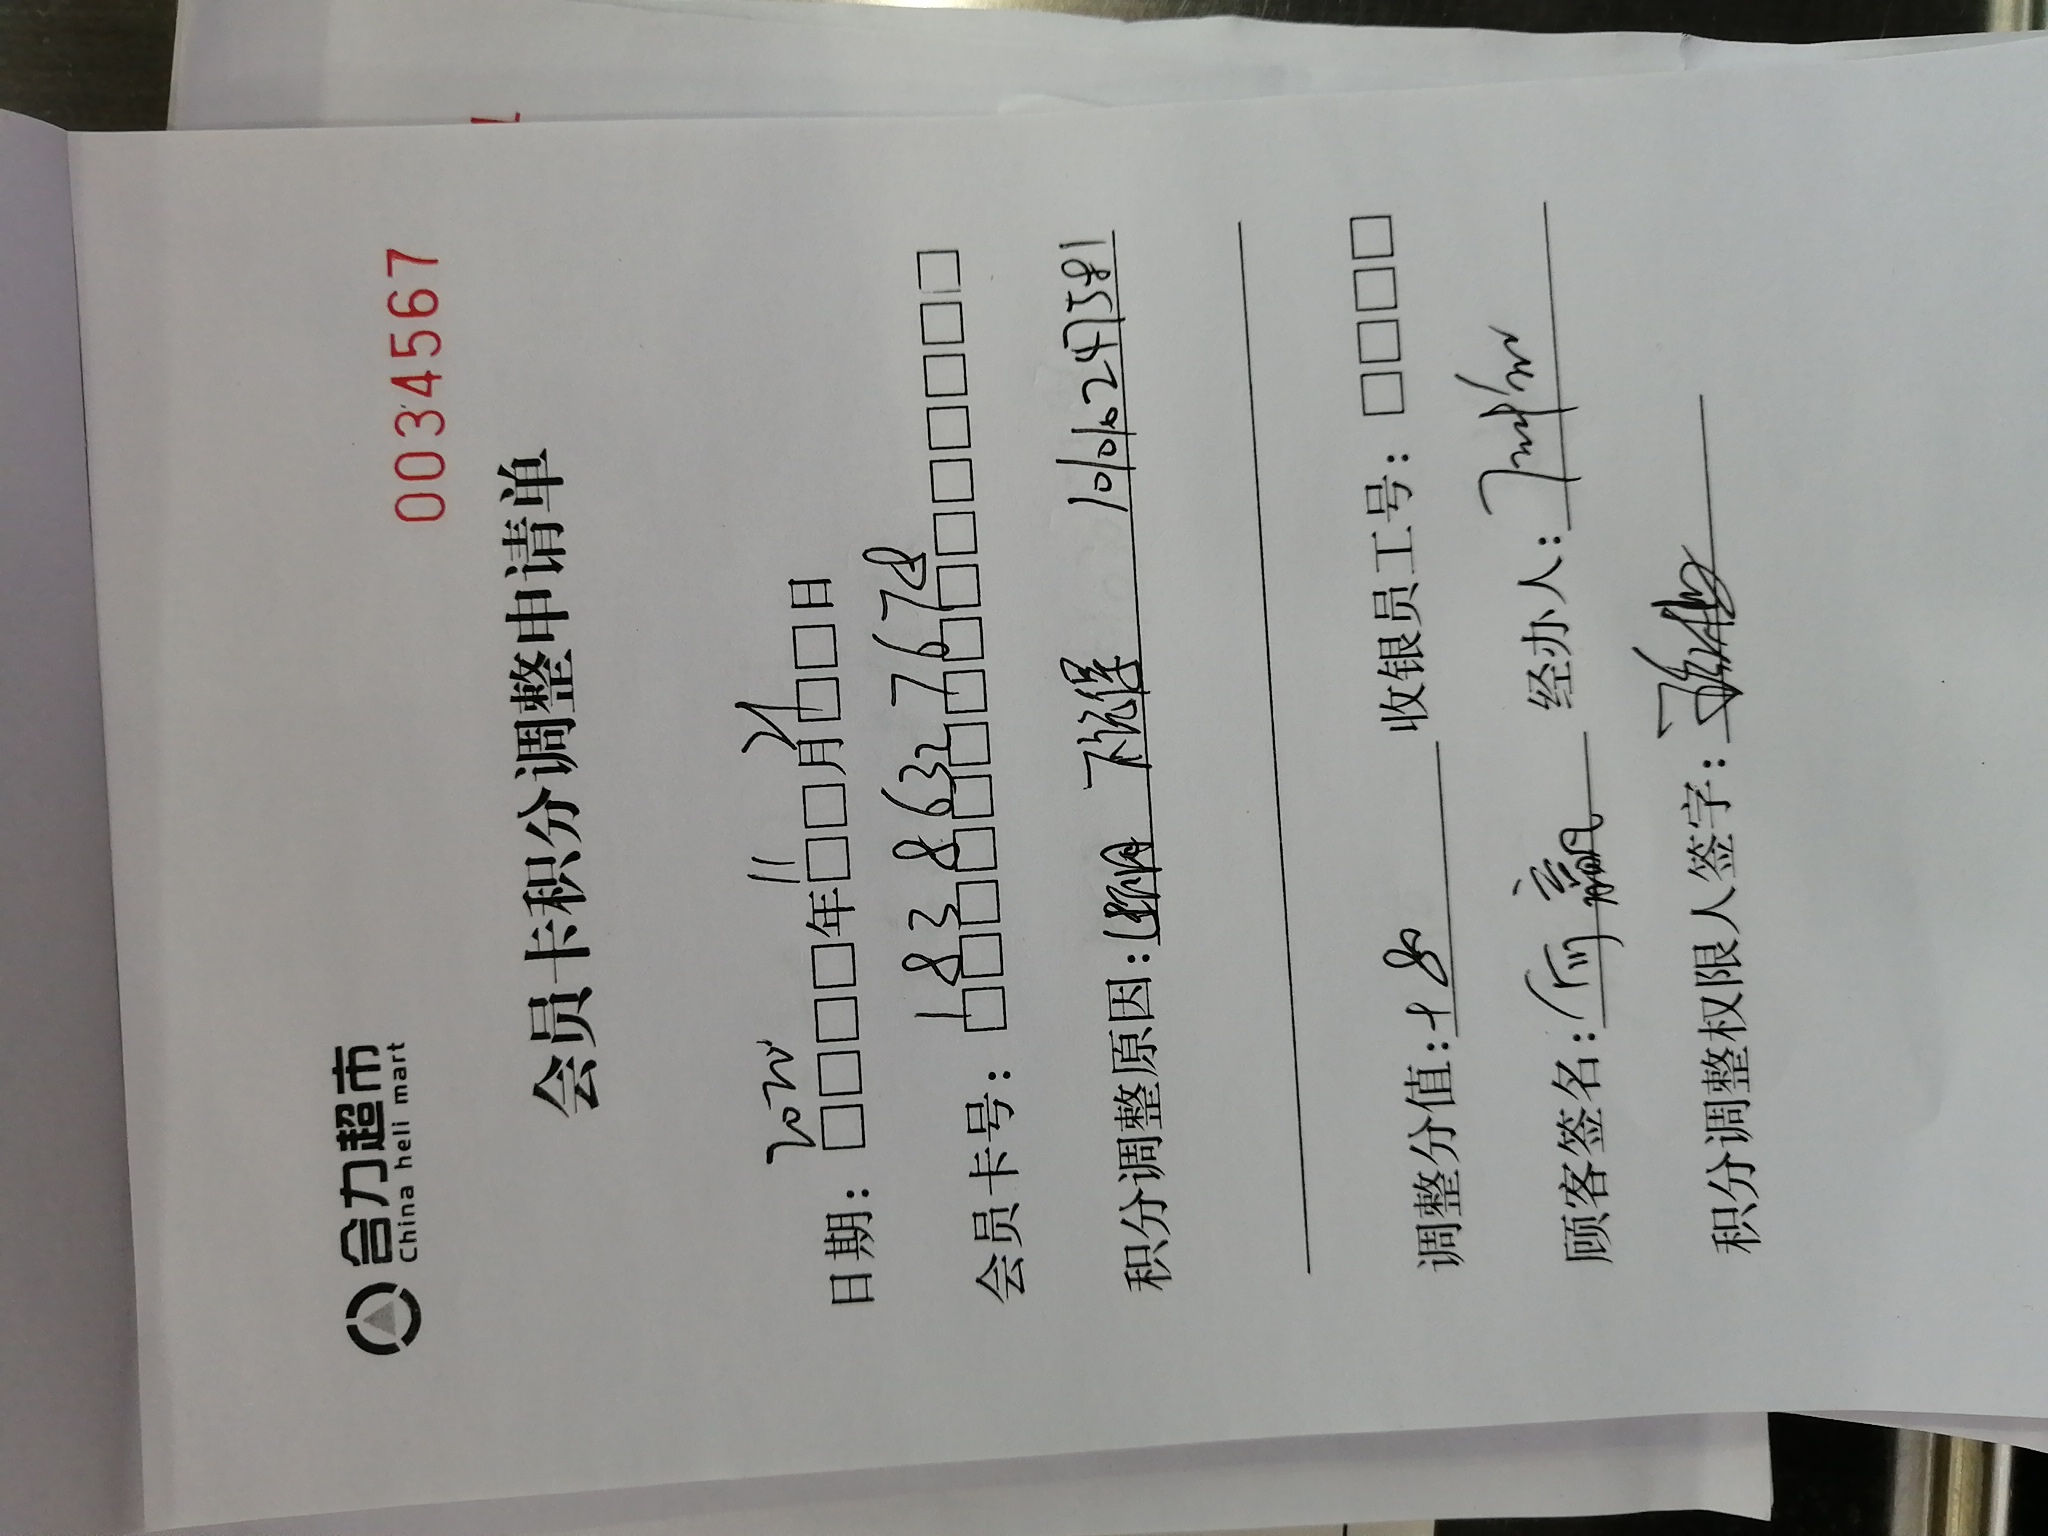 0034567
合力超市
China heli mart
会员卡积分调整申请单
日期：年11月21日
会员卡号：18386327678
积分调整原因：
调整分值：+80 收银员工号：
顾客签名： 经办人：
积分调整权限人签字：